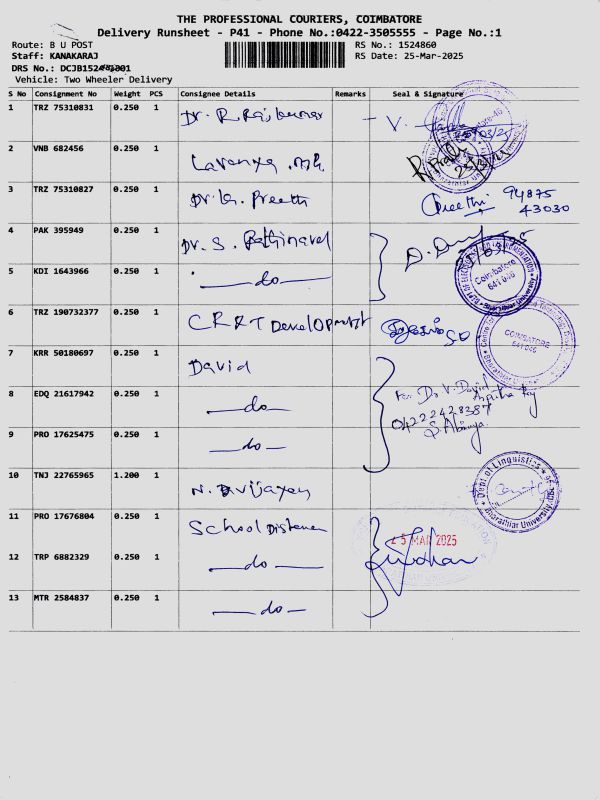 THE PROFESSIONAL COURIERS, COIMBATORE
Delivery Runsheet - P41 - Phone No.:0422-3505555 - Page No.:1
Route: B U POST
Staff: KANAKARAJ
DRS No.: DCJB152
Vehicle: Two Wheeler Delivery
RS No.: 1524860
RS Date: 25-Mar-2025
S No Consignment No Weight PCS Consignee Details Remarks Seal & Signature
1 TRZ 75310831 0.250 1 Dr. R. Rajkumar
2 VNB 682456 0.250 1 Lavanya
3 TRZ 75310827 0.250 1 Dr. G. Preeth Preethi 94875
43030
4 PAK 395949 0.250 1 Dr. S. Rathinavel
5 KDI 1643966 0.250 1 —do—
Coimbatore
641 046
6 TRZ 190732377 0.250 1 CRRT Development
COIMBATORE
641 046
7 KRR 50180697 0.250 1 David
8 EDQ 21617942 0.250 1 —do— Dr V. David
04222428387
9 PRO 17625475 0.250 1 —do—
10 TNJ 22765965 1.200 1 N. Vijayan
Dept of Linguistics
Bharathiar University
11 PRO 17676804 0.250 1 School Distance
25 MAR 2025
12 TRP 6882329 0.250 1 —do—
13 MTR 2584837 0.250 1 —do—